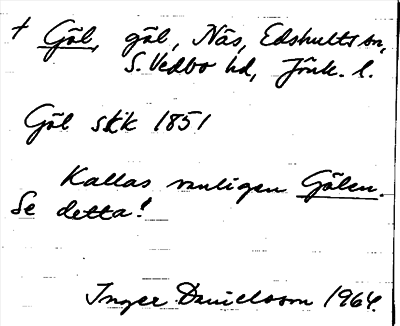 + Göl, göl, Näs, Edshults sn,
S. Vedbo hd, Jönk. l.
Göl skk 1851
Kallas vanligen Gölen.
Se detta!
Inger Danielsson 1964.